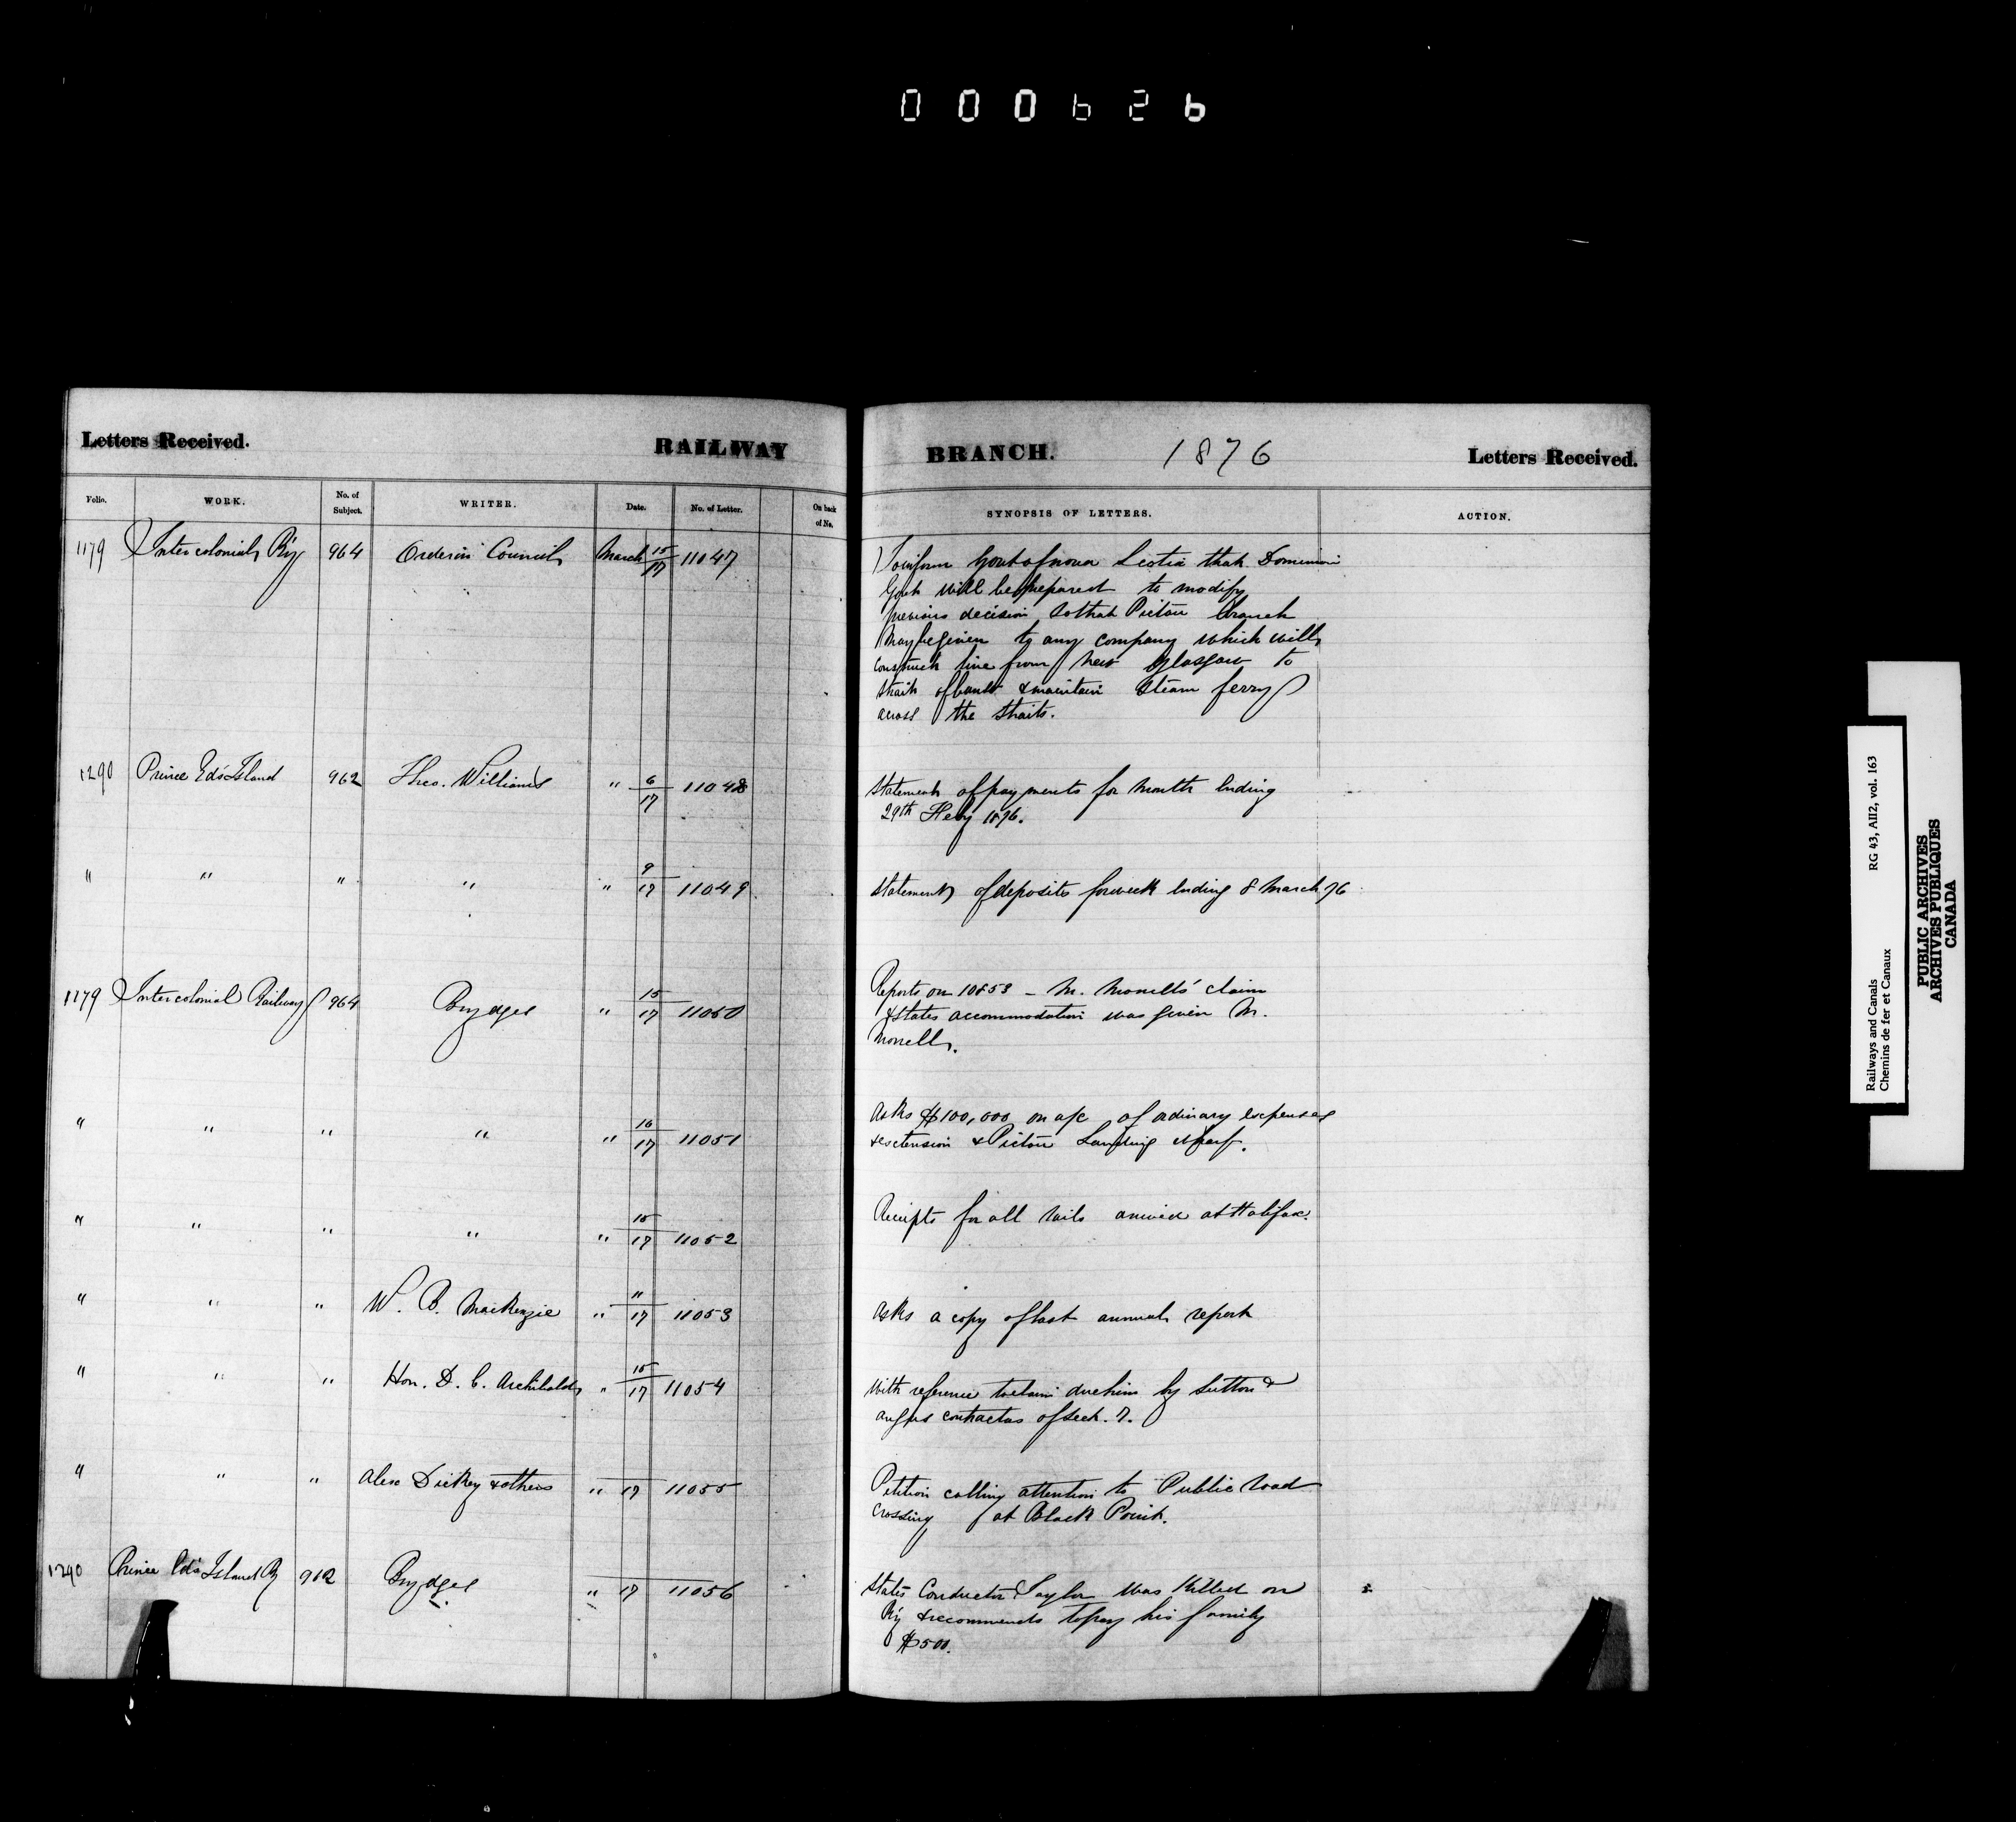 000626
Letters Received. RAILWAY BRANCH. 1876 Letters Received.
Folio. WORK. No. of Subject. WRITER. Date. No. of Letter. On back of No. SYNOPSIS OF LETTERS. ACTION.
1179 Intercolonial Ry 964 Order in Council March 15/17 11047 To inform Govt of nova Scotia that Dominion
Govt will be prepared to modify
previous decision so that Pictou branch
may be given to any company which will
construct line from New Glasgow to
Strait of Canso & maintain Steam ferry
across the Straits.
1290 Prince Ed's Island 962 Theo. Williams " 6/17 11048 Statement of payments for month ending
29th Feby 1876.
" " " " " 9/17 11049 Statement of deposits for week ending 8 March 76
1179 Intercolonial Railway 964 Brydges " 15/17 11050 Reports on 10853 - M. Monells' claim
& states accommodation was given M.
Monell.
" " " " " 16/17 11051 Asks $100,000 on a/c of ordinary expenses
& extension & Pictou Landing Wharf.
" " " " " 15/17 11052 Receipts for all rails arrived at Halifax.
" " " W. B. MacKenzie " 11/17 11053 Asks a copy of last annual report
" " " Hon. D. C. Archibald " 15/17 11054 With reference to claim due him by Sutton &
Angus contractors of Sect. 7.
" " " Alex Dickey & others " 17 11055 Petition calling attention to Public road
crossing at Black Point.
1290 Prince Ed's Island Ry 912 Brydges " 17 11056 States Conductor Taylor was Killed on
Ry & recommends to pay his family
$500.
Railways and Canals RG 43, AII2, vol. 163
Chemins de fer et Canaux
PUBLIC ARCHIVES
ARCHIVES PUBLIQUES
CANADA